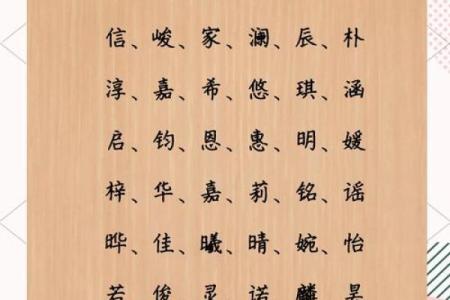 信、峻、家、澜、辰、朴
淳、嘉、希、悠、琪、涵
启、钧、恩、惠、明、媛
梓、华、嘉、莉、铭、谣
晔、佳、曦、晴、婉、怡
若、俊、灵、诺、麟、昊